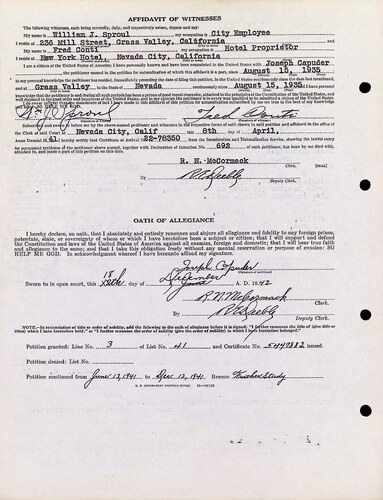 AFFIDAVIT OF WITNESSES
The following witnesses, each being severally, duly, and respectively sworn, depose and say:
My name is William J. Sproul, my occupation is City Employee
I reside at 236 Mill Street, Grass Valley, California, and
My name is Fred Conti, my occupation is Hotel Proprietor
I reside at New York Hotel, Nevada City, California
I am a citizen of the United States of America; I have personally known and have been acquainted in the United States with Joseph Capuder
, the petitioner named in the petition for naturalization of which this affidavit is a part, since August 15, 1935
to my personal knowledge the petitioner has resided, immediately preceding the date of filing this petition, in the United States continuously since the date last mentioned,
and at Grass Valley, in the Nevada August 15, 1935
Wm J Sproul Fred Conti
Subscribed and sworn to before me by the above-named petitioner and witnesses in the respective forms of oath shown in said petition and affidavit in the office of
the Clerk of said Court at Nevada City, Calif this 8th day of April,
Anno Domini 19 41 22-78350 from the Immigration and Naturalization Service, showing the lawful entry
for permanent residence of the petitioner above named, together with Declaration of Intention No. 692 of such petitioner, has been by me filed with,
attached to, and made a part of this petition on this date.
R. N. McCormack
Clerk.
[SEAL]
By
Deputy Clerk.
OATH OF ALLEGIANCE
I hereby declare, on oath, that I absolutely and entirely renounce and abjure all allegiance and fidelity to any foreign prince,
potentate, state, or sovereignty of whom or which I have heretofore been a subject or citizen; that I will support and defend
the Constitution and laws of the United States of America against all enemies, foreign and domestic; that I will bear true faith
and allegiance to the same; and that I take this obligation freely without any mental reservation or purpose of evasion: SO
HELP ME GOD. In acknowledgment whereof I have hereunto affixed my signature.
Joseph Capuder
18 September
Sworn to in open court, this day of A. D. 1942
R. N. McCormack
Clerk.
By
Deputy Clerk.
NOTE.—In renunciation of title or order of nobility, add the following to the oath of allegiance before it is signed: "I further renounce the title of (give title or
titles) which I have heretofore held," or "I further renounce the order of nobility (give the order of nobility) to which I have heretofore belonged."
Petition granted: Line No. 3 of List No. 41 and Certificate No. 5449882 issued.
Petition denied: List No.
Petition continued from June 13, 1941 to Dec 12, 1941 Reason Further Study
U. S. GOVERNMENT PRINTING OFFICE